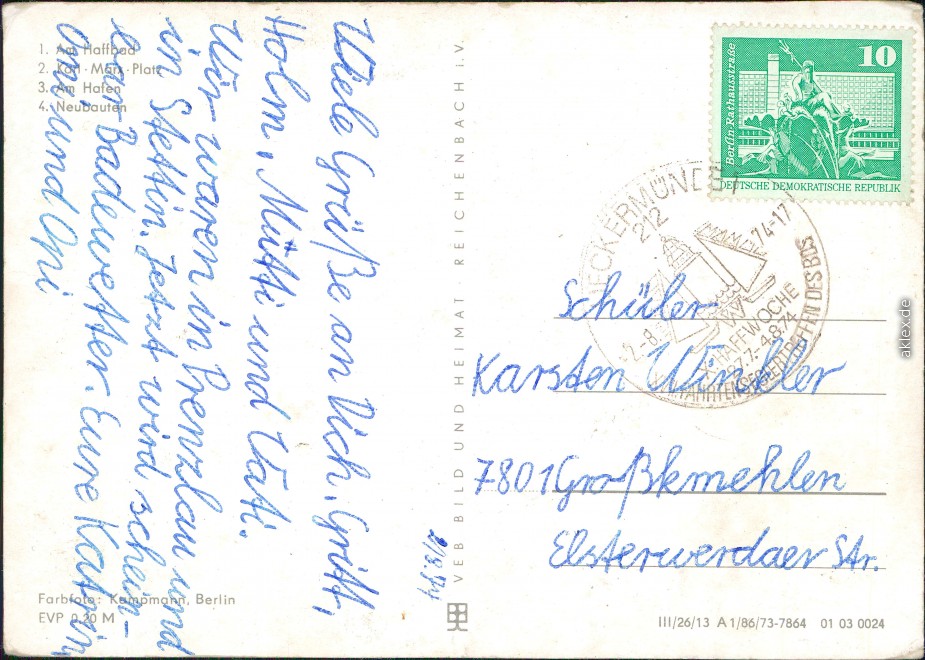 1. Am Haffbad
2. Karl-Marx-Platz
3. Am Hafen
4. Neubauten
Viele Grüße an Dich, Gritt,
Holm, Mutti und Vati.
Wir waren in Prenzlau und
in Stettin. Jetzt wird schein-
bar Badewetter. Eure Katrin
Oma und Opi
2/8.74
Farbfoto: Kampmann, Berlin
EVP 0,20 M
VEB BILD UND HEIMAT · REICHENBACH i. V.
10
Berlin-Rathausstraße
DEUTSCHE DEMOKRATISCHE REPUBLIK
UECKERMÜNDE 1
212
-2.-8. 74-17
HAFFWOCHE
27.7.-4.8.74
FAHRTENSEGLERTREFFEN DES BDS
Schüler
Karsten Winkler
7801 Großkmehlen
Elsterwerdaer Str.
III/26/13 A 1/86/73-7864 01 03 0024
aklex.de